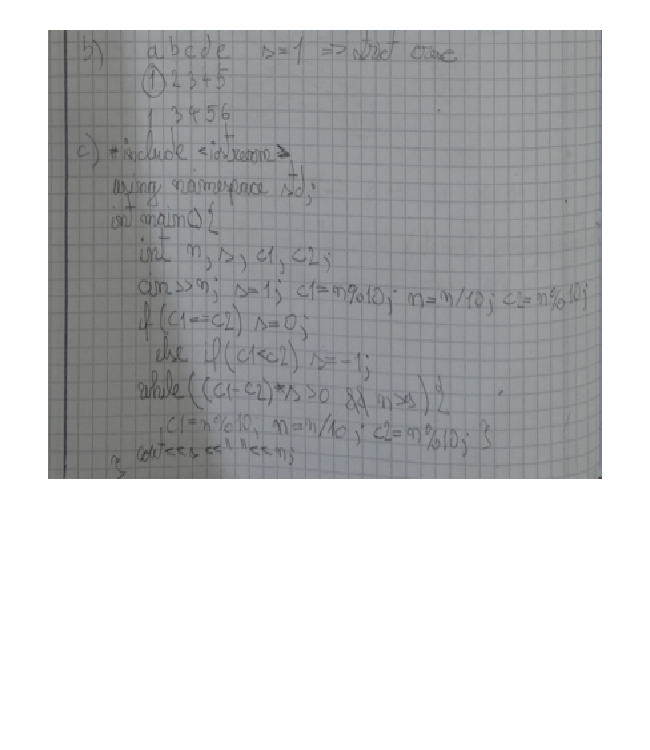 b) a b c d e s=1 =>
① 2 3 4 5
1 3 4 5 6
c) #include <iostream>
using namespace std;
int main(){
int n, s, c1, c2;
cin>>n; s=1; c1=n%10; n=n/10; c2=n%10;
if (c1==c2) s=0;
else if(c1<c2) s=-1;
while((c1-c2)*s>0 && n>s){
c1=n%10; n=n/10; c2=n%10; }
cout<<s<<" "<<n;
}